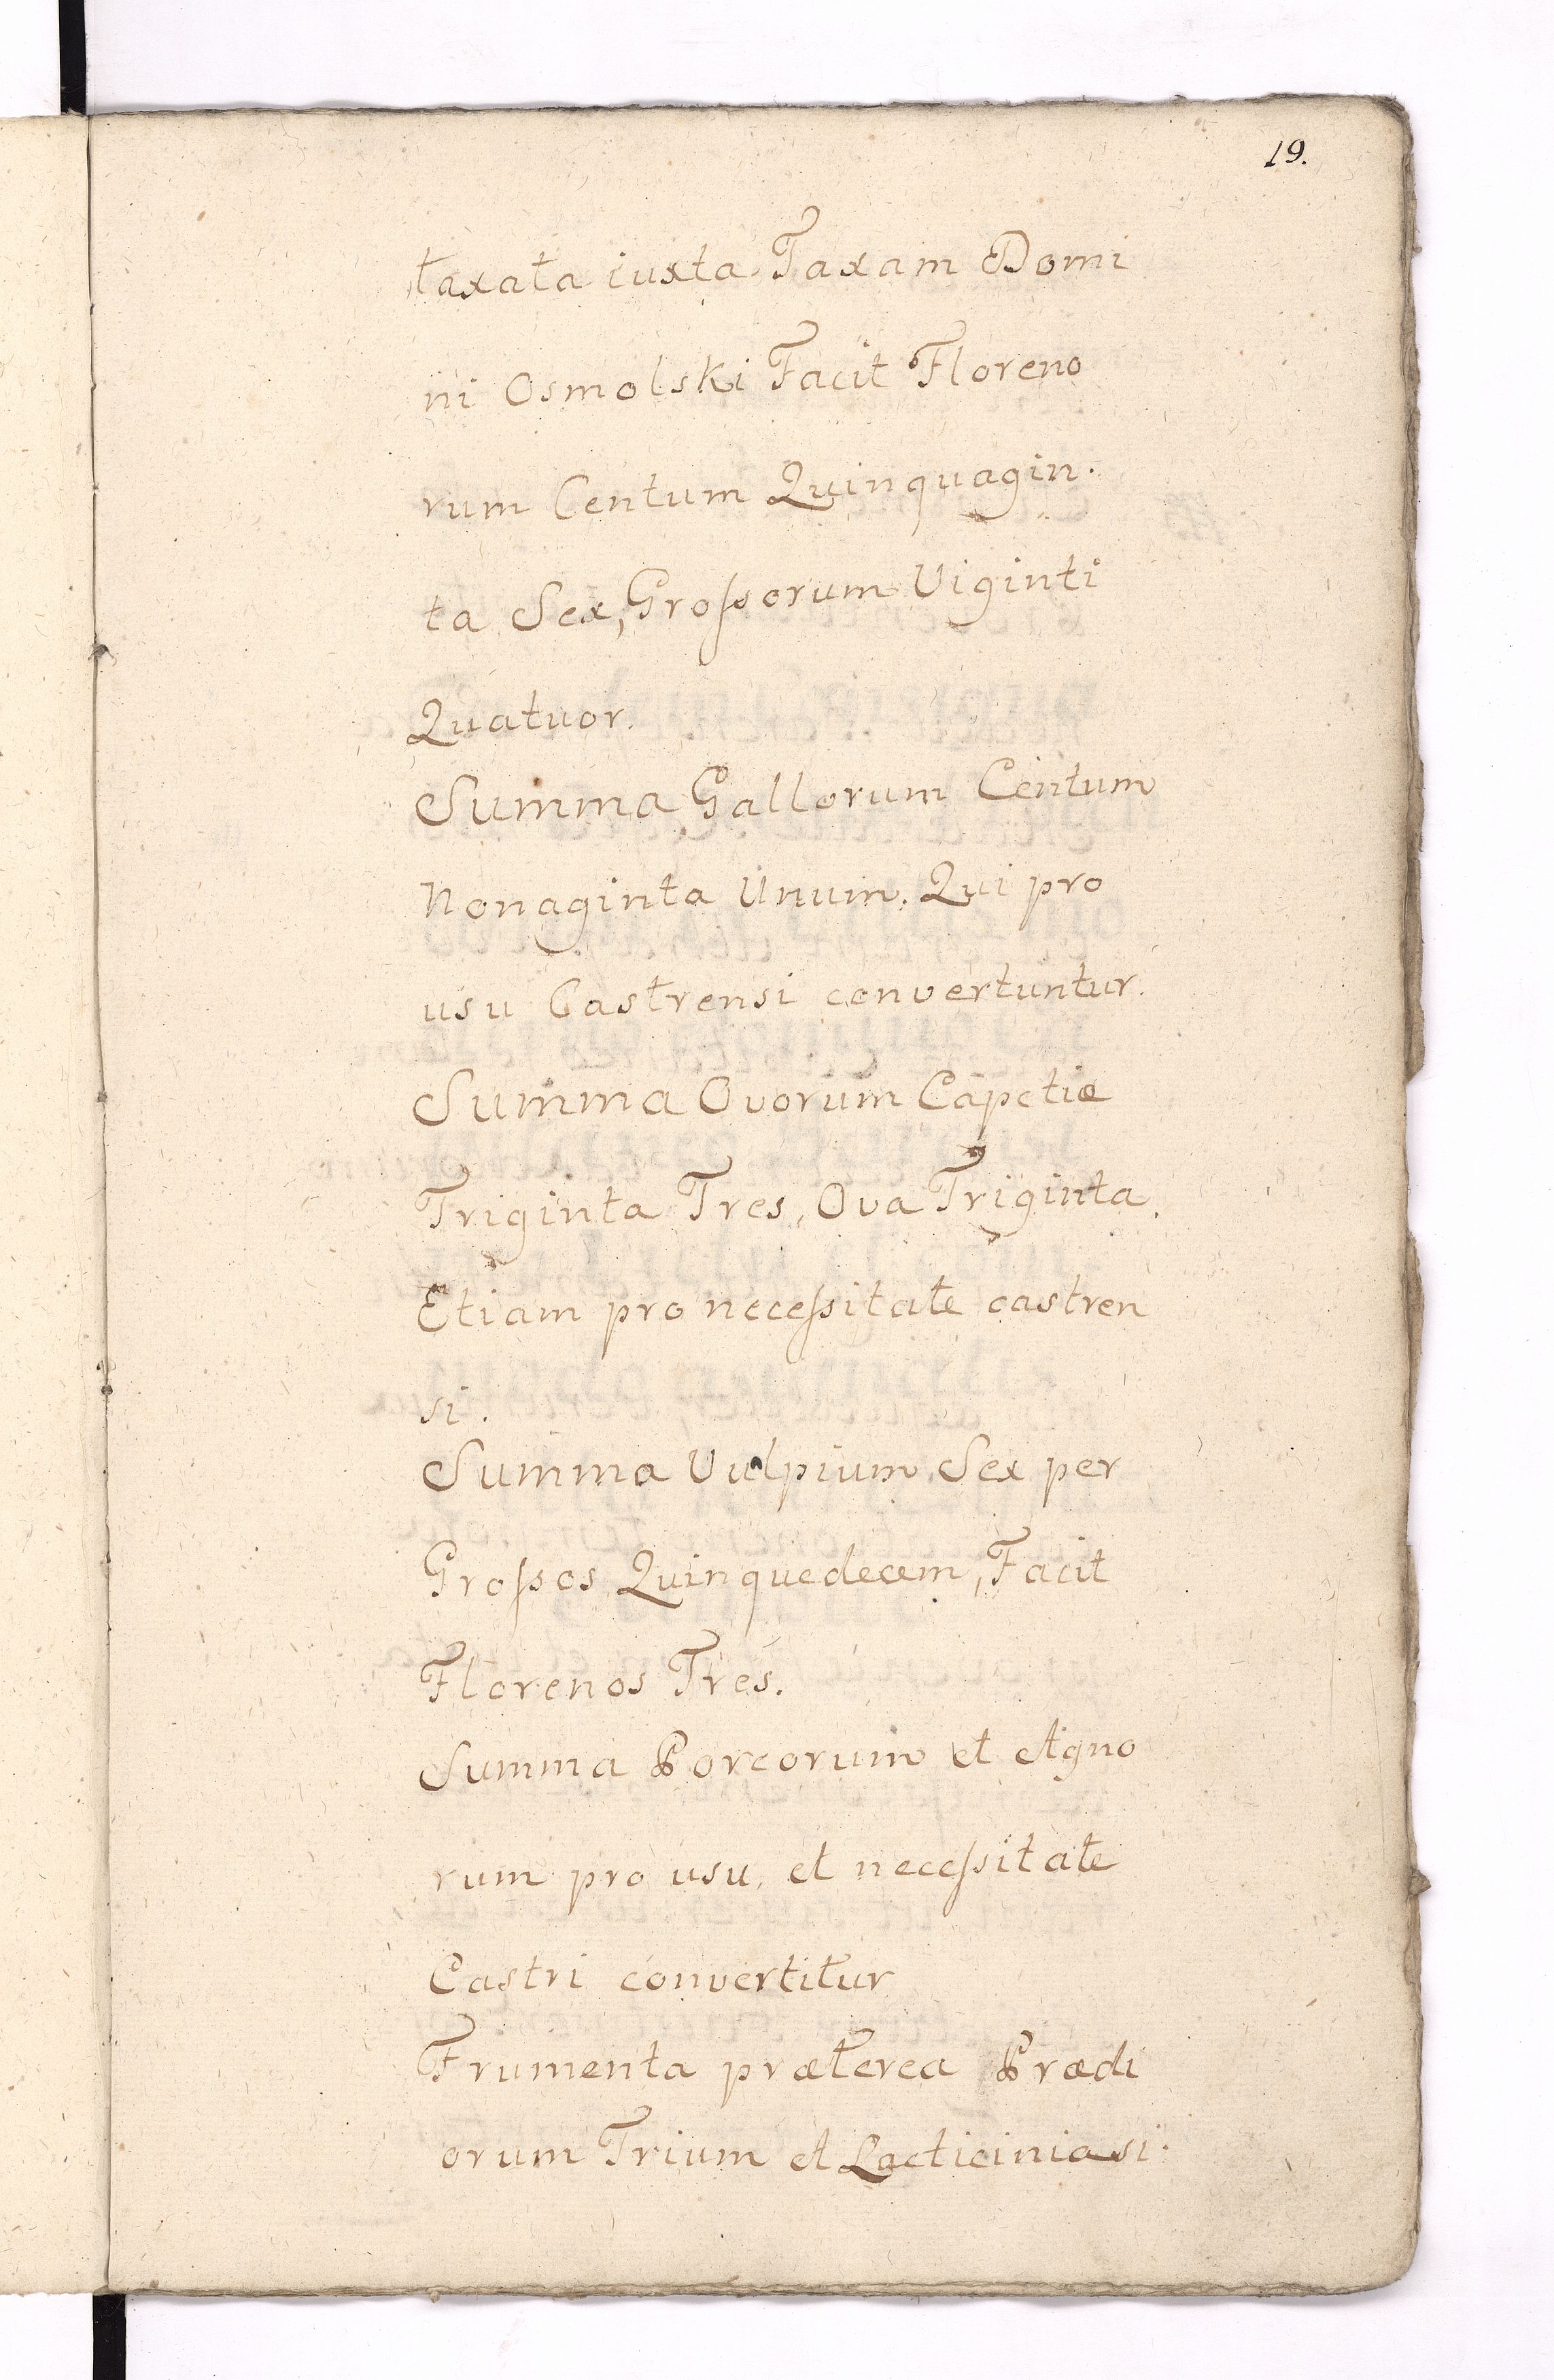 19.
taxata iuxta Taxam Domi
ni Osmolski Facit Floreno
rum Centum Quinquagin.
ta Sex, Grossorum Viginti
Quatuor.
Summa Gallorum Centum
Nonaginta Unum. Qui pro
usu Castrensi convertuntur.
Summa Ovorum Capetiæ
Triginta Tres, Ova Triginta.
Etiam pro necessitate castren
si.
Summa Vulpium Sex per
Grossos Quinquedecem, Facit
Florenos Tres.
Summa Porcorum et Agno
rum pro usu et necessitate
Castri convertitur
Frumenta præterea Prædi
orum Trium et Lacticinia si